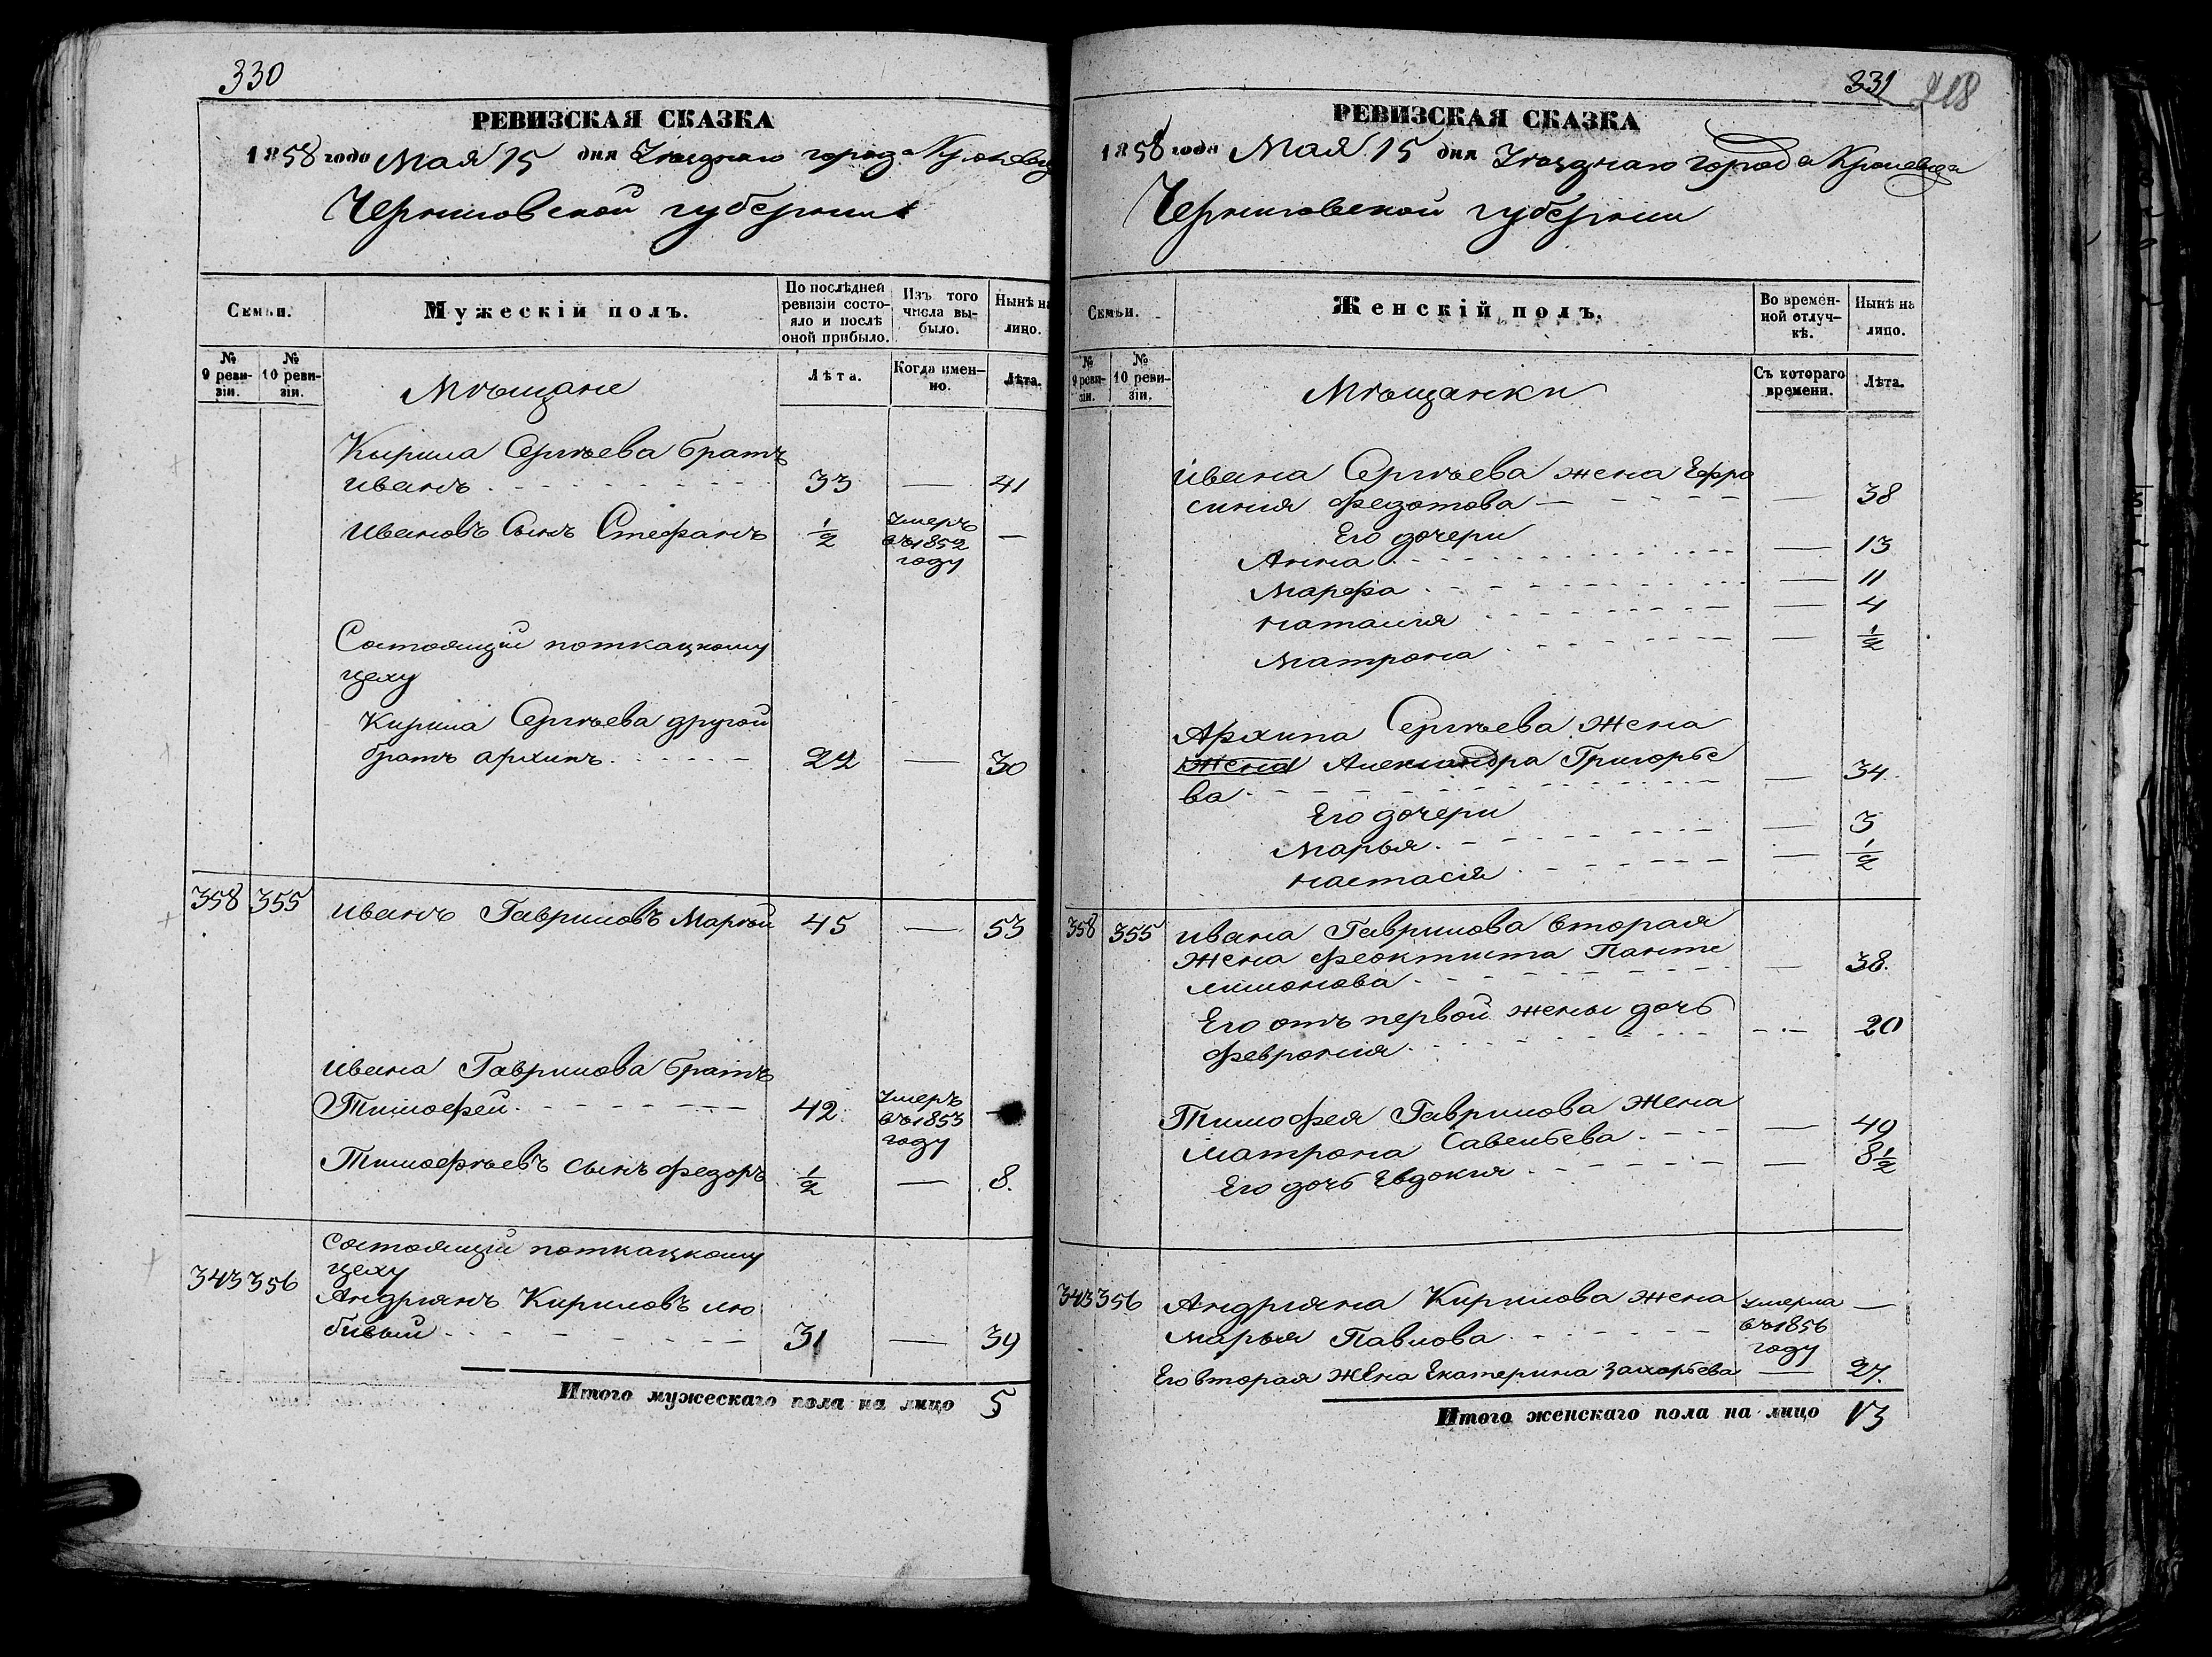 330
РЕВИЗСКАЯ СКАЗКА
1858 года Мая 15 дня Уезднаго города Кролевца
Черниговской губернии
Семьи.
Мужескій полъ.
По послѣдней ревизіи состояло и послѣ оной прибыло.
Изъ того числа выбыло.
Нынѣ на лицо.
№ 9 ревизіи.
№ 10 ревизіи.
Мѣщане
Лѣта.
Когда именно.
Лѣта.
Кирила Сергѣева братъ
Иванъ 33 — 41
Ивановъ Сынъ Стефанъ ½ Умеръ въ 1852 году —
Состоящій поткацкому
цеху
Кирила Сергѣева другой
братъ архипъ 22 — 30
358 355 Иванъ Гавриловъ Маргѣй 45 — 53
Ивана Гаврилова братъ
Тимофей 42 Умеръ въ 1853 году —
Тимофѣевъ сынъ федоръ ½ — 8.
состоящій поткацкому
цеху
343 356 Андріянъ Кириловъ лю
бивый 31 — 39
Итого мужескаго пола на лицо 5
331
218
РЕВИЗСКАЯ СКАЗКА
1858 года Мая 15 дня Уезднаго города Кролевца
Черниговской губернии
Семьи.
Женскій полъ.
Во временной отлучкѣ.
Нынѣ на лицо.
№ 9 ревизіи.
№ 10 ревизіи.
Мѣщанки
Съ котораго времени.
Лѣта.
Ивана Сергѣева жена Ефро
синия Федотова — 38
Его дочери
Анна — 13
Марфа — 11
Наталия — 4
Матрона — ½
Архипа Сергѣева Жена
Жена Александра Григорье
ва — 34.
Его дочери
Марья — 3
Настасія — ½
358 355 Ивана Гаврилова вторая
жена Феоктиста Панте
лимонова — 38.
Его отъ первой жены дочь
Феврония — 20
Тимофея Гаврилова Жена
Матрона Савельева — 49
Его дочь Евдокия — 8½
343 356 Андріяна Кирилова жена
Марья Павлова Умерла въ 1856 году —
Его вторая Жена Екатерина Захарьева — 27.
Итого женскаго пола на лицо 13